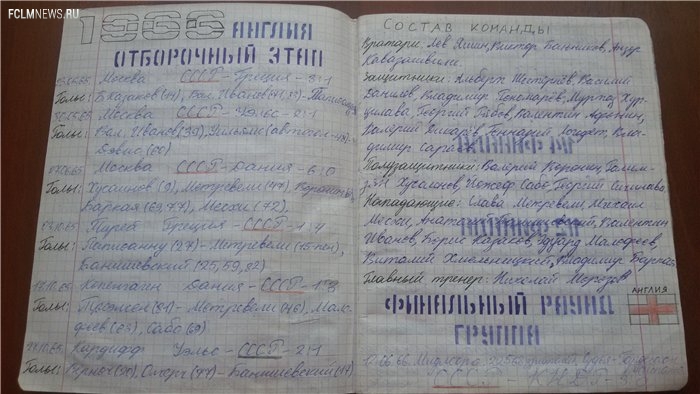 FCLMNEWS.RU
1966 АНГЛИЯ
ОТБОРОЧНЫЙ ЭТАП
Москва СССР - Греция - 3:1
Голы: Б.Казаков Вал. Иванов
30.05.65. Москва СССР - Уэльс - 2:1
Голы: Вал. Иванов (39), Уильямс (автогол
Дэвис (60)
27.06.65 Москва СССР - Дания - 6:0
Голы: Хусаинов (9), Метревели (47), Воронин
Баркая (63,77), Месхи (72).
03.10.65 Пирей Греция - СССР - 1:4
Голы: Папаиоанну (27) - Метревели (15-пен),
Банишевский (25,59,82)
Копенгаген Дания - СССР - 1:3
Голы: Метревели (46), Мало-
феев (63), Сабо (69)
27.10.65. Кардифф Уэльс - СССР - 2:1
Голы: - Банишевский (17)
СОСТАВ КОМАНДЫ
Вратари: Лев Яшин, Виктор Банников, Анзор
Кавазашвили.
Защитники: Альберт Шестернёв, Василий
Данилов, Владимир Пономарёв, Муртаз Хур-
цилава, Георгий Рябов, Валентин Афонин,
Валерий Дикарёв, Геннадий Логофет, Вла-
димир
Полузащитники: Валерий Воронин, Галим-
зян Хусаинов, Йожеф Сабо, Георгий Сичинава
Нападающие: Слава Метревели, Михаил
Месхи, Анатолий Банишевский, Валентин
Иванов, Борис Казаков, Эдуард Малофеев,
Виталий Хмельницкий, Владимир Баркая
Главный тренер: Николай Морозов
АНГЛИЯ
ФИНАЛЬНЫЙ РАУНД
ГРУППА
12.06.66. Мидлсбро.
СССР - КНДР - 3:0